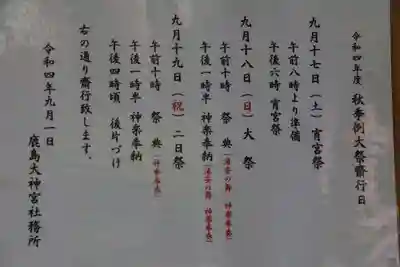 令和四年度 秋季例大祭齋行日
九月十七日（土）宵宮祭
午前八時より準備
午後六時 宵宮祭
九月十八日（日）大祭
午前十時 祭典（浦安の舞 神楽奉奏）
午後一時半 神楽奉納（浦安の舞 神楽奉奏）
九月十九日（祝）二日祭
午前十時 祭典（神楽奉奏）
午後一時半 神楽奉納
午後四時頃 後片づけ
右の通り齋行致します。
令和四年九月一日
鹿島大神宮社務所